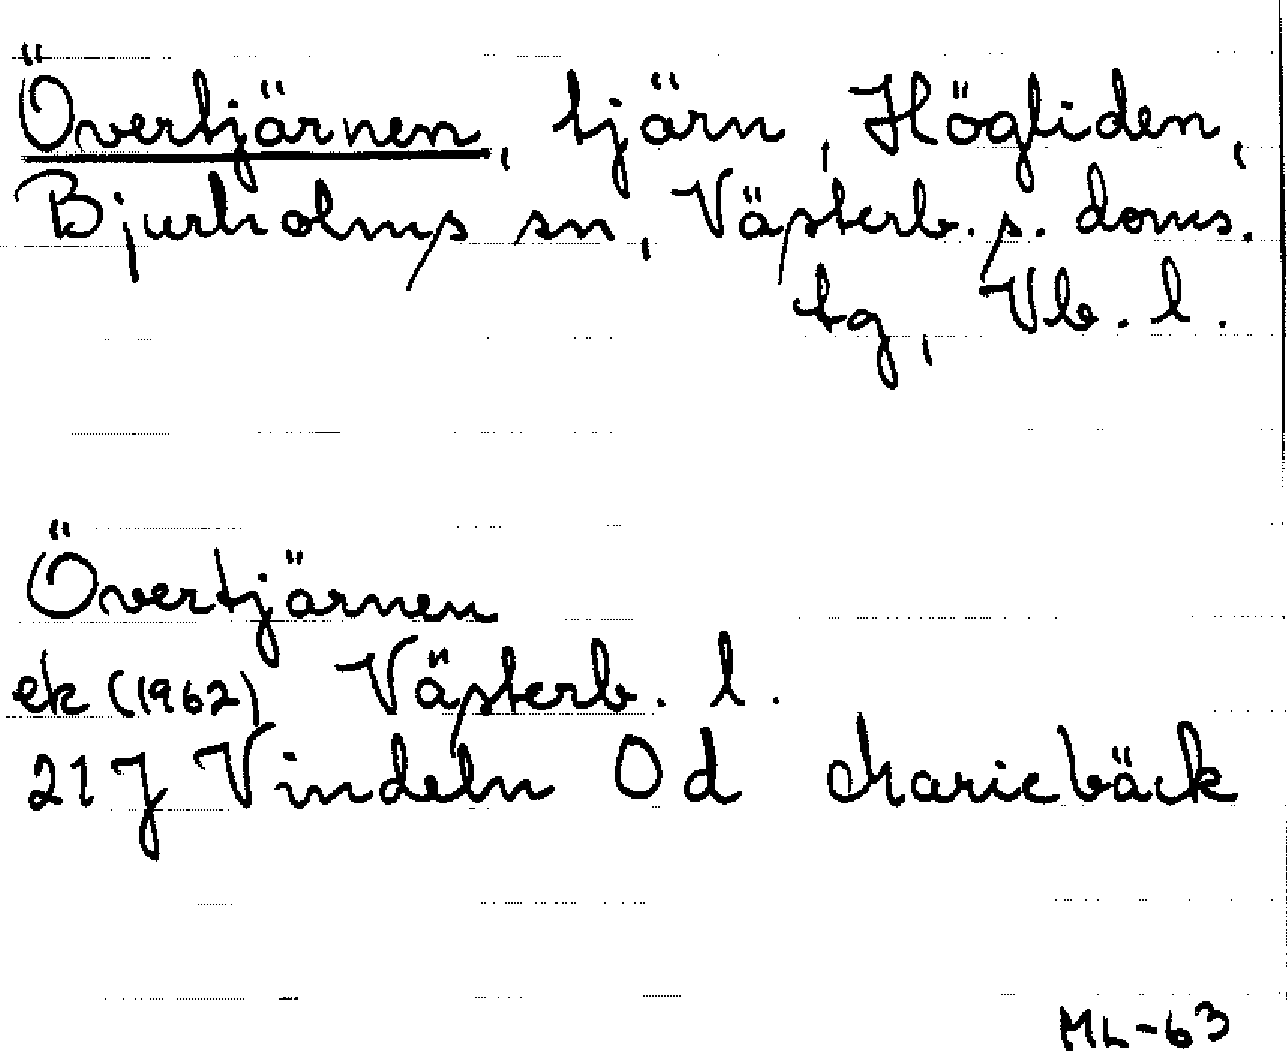 Övertjärnen, tjärn, Högliden,
Bjurholms sn, Västerb. s. doms.
tg, Vb. l.
Övertjärnen
ek (1962) Västerb. l.
21 J Vindeln 0 d Mariebäck
ML-63